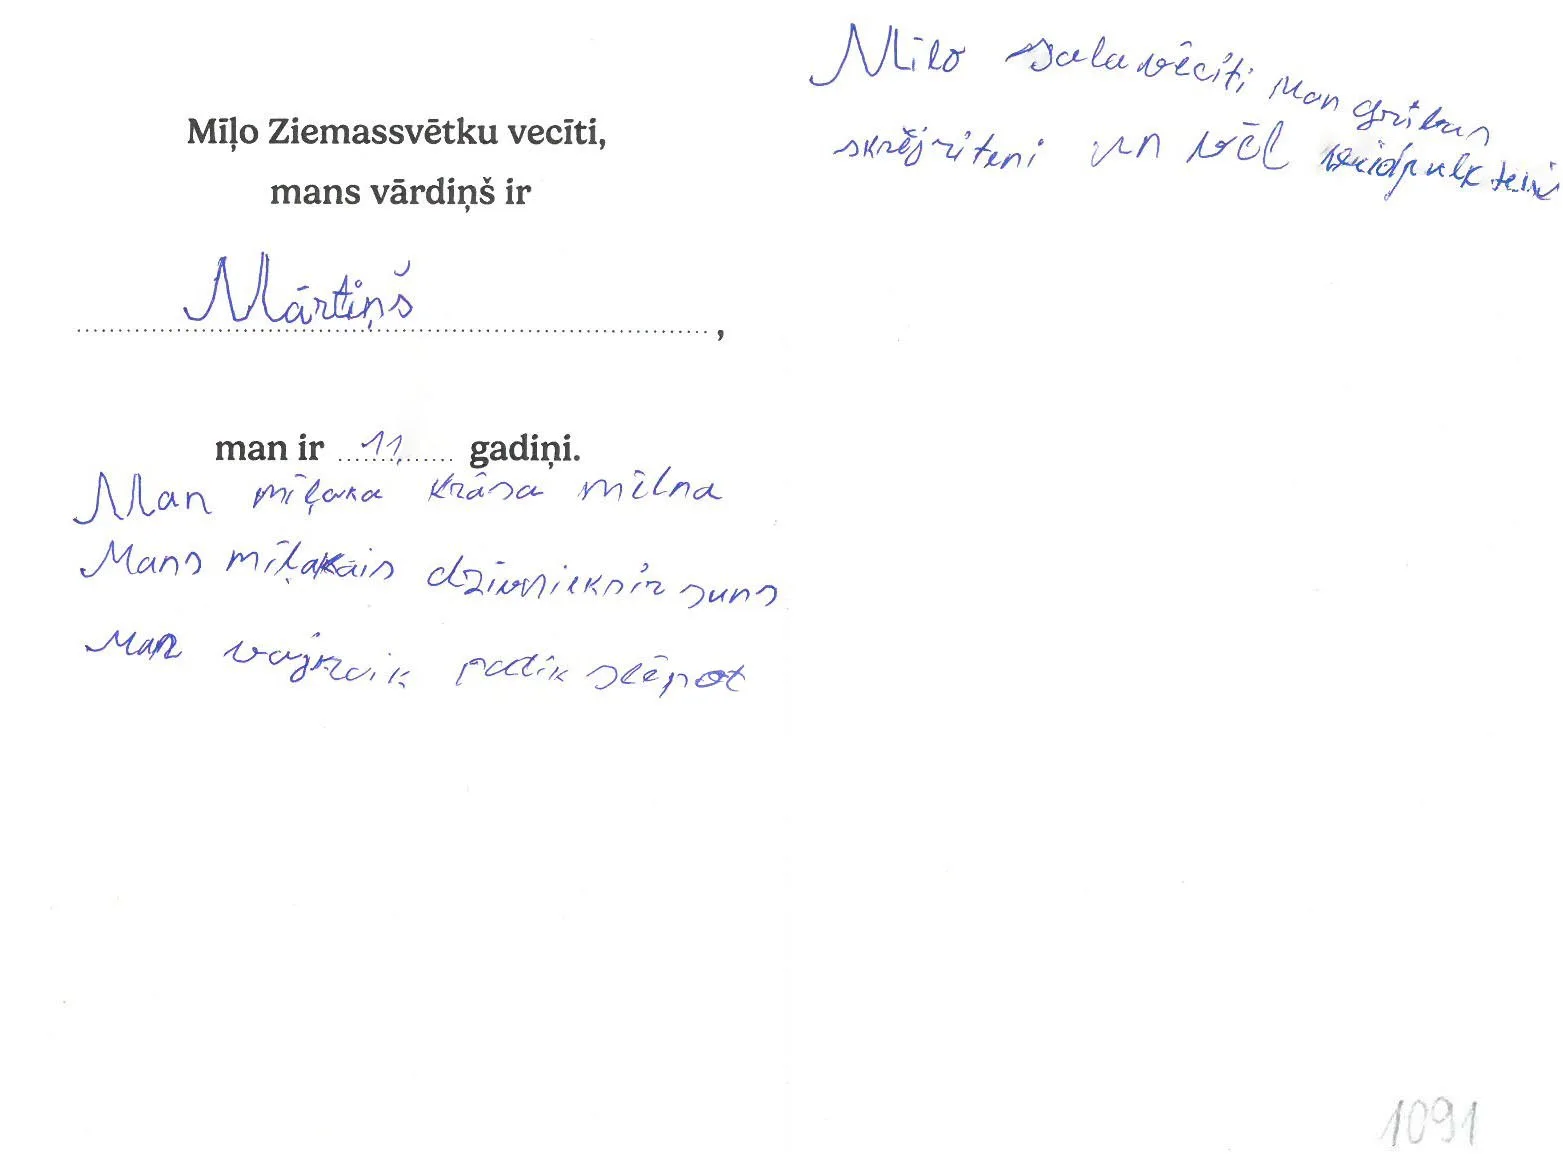 Mīļo Ziemassvētku vecīti,
mans vārdiņš ir
Mārtiņš,
man ir 11, gadiņi.
Man mīļaka krāsa mīlna
Mans mīļakais dzīvnieks ir suns
Man vajrāik patīk slēpot
Mīlo salavēcīti man gribas
skrējriteni un vēl viedpulksteni
1091